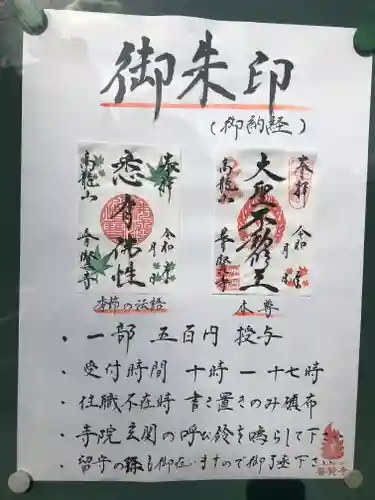 御朱印
(御納経)
奉拝
悉有佛性
高龍山
普賢寺
令和 年 月 日
奉拝
大聖不動明王
高龍山
普賢寺
令和 年 月 日
季節の法語
本尊
・一部 五百円 授与
・受付時間 十時ー十七時
・住職不在時 書き置きのみ頒布
・寺院玄関の呼び鈴を鳴らして下
・留守の 御在 ますので御了承下さ